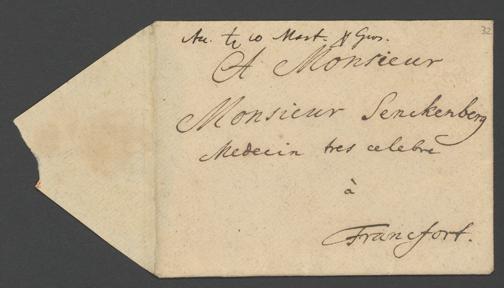 32
10 Mart.
A Monsieur
Monsieur Senckenberg
Medecin tres celebre
à
Francfort.